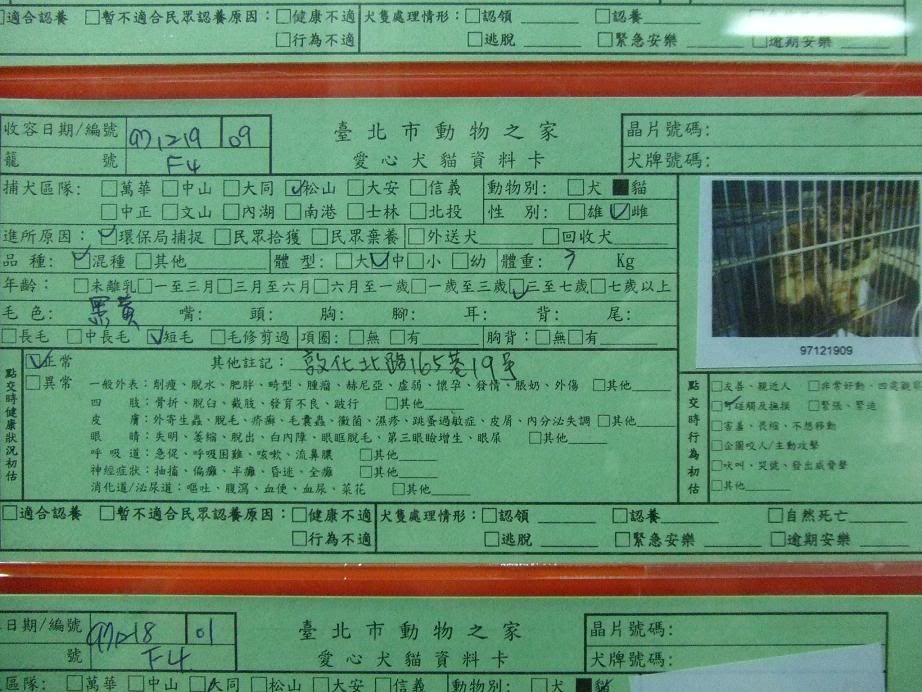 適合認養 □暫不適合民眾認養原因：□健康不適 犬隻處理情形：□認領 □認養
□行為不適 □逃脫 □緊急安樂 □逾期安樂
收容日期/編號 971219 09 臺北市動物之家 晶片號碼：
籠 號 F4 愛心犬貓資料卡 犬牌號碼：
捕犬區隊：□萬華 □中山 □大同 ☑松山 □大安 □信義 動物別：□犬 ■貓
□中正 □文山 □內湖 □南港 □士林 □北投 性 別：□雄 ☑雌
進所原因：☑環保局捕捉 □民眾拾獲 □民眾棄養 □外送犬 □回收犬
品 種：☑混種 □其他 體 型：□大 ☑中 □小 □幼 體重：3 Kg
年齡：□未離乳 □一至三月 □三月至六月 □六月至一歲 □一歲至三歲 ☑三至七歲 □七歲以上
毛 色：黑黃 嘴： 頭： 胸： 腳： 耳： 背： 尾：
□長毛 □中長毛 ☑短毛 □毛修剪過 項圈：□無 □有 胸背：□無 □有
97121909
點交時健康狀況初估
☑正常 其他註記：敦化北路165巷19号
□異常 一般外表：削瘦、脫水、肥胖、畸型、腫瘤、赫尼亞、虛弱、懷孕、發情、脹奶、外傷 □其他
四 肢：骨折、脫臼、截肢、發育不良、跛行 □其他
皮 膚：外寄生蟲、脫毛、疥癬、毛囊蟲、黴菌、濕疹、跳蚤過敏症、皮屑、內分泌失調 □其他
眼 睛：失明、萎縮、脫出、白內障、眼眶脫毛、第三眼瞼增生、眼屎 □其他
呼吸道：急促、呼吸困難、咳嗽、流鼻膿 □其他
神經症狀：抽搐、偏癱、半癱、昏迷、全癱 □其他
消化道/泌尿道：嘔吐、腹瀉、血便、血尿、菜花 □其他
點交時行為初估
□友善、親近人 □非常好動、四處觀
☑可碰觸及撫摸 □緊張、緊迫
□害羞、畏縮、不想移動
□企圖咬人/主動攻擊
□吠叫、哭號、發出威脅聲
□其他
□適合認養 □暫不適合民眾認養原因：□健康不適 犬隻處理情形：□認領 □認養 □自然死亡
□行為不適 □逃脫 □緊急安樂 □逾期安樂
日期/編號 971218 01 臺北市動物之家 晶片號碼：
號 F4 愛心犬貓資料卡 犬牌號碼：
區隊：□萬華 □中山 □大同 □松山 □大安 □信義 動物別：□犬 ■貓